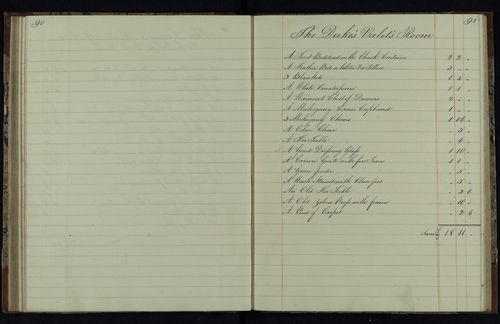 90
91
The Duke's Valet's Room
A Tent Bedstead with Check Curtains 2 2 -
A Feather Bed a bolster & a Pillow 5 - -
3 Blankets 1 5 -
A White Counterpane 1 1 -
A Wainscot Chest of Drawers 2 - -
A Mahogany Corner Cupboard 1 - -
3 Mahogany Chairs 1 10 -
A Elm Chair - 5 -
A Fir Table - 6 -
A Good Dressing Glass 1 10 -
A Carron Grate with fire Irons 1 1 -
A Green fender - 5 -
A Wash Stand with Claw feet - 5 -
An Old Fir Table - 3 6
A Old with frame - 10 -
A Piece of Carpet - 2 6
18 11 -